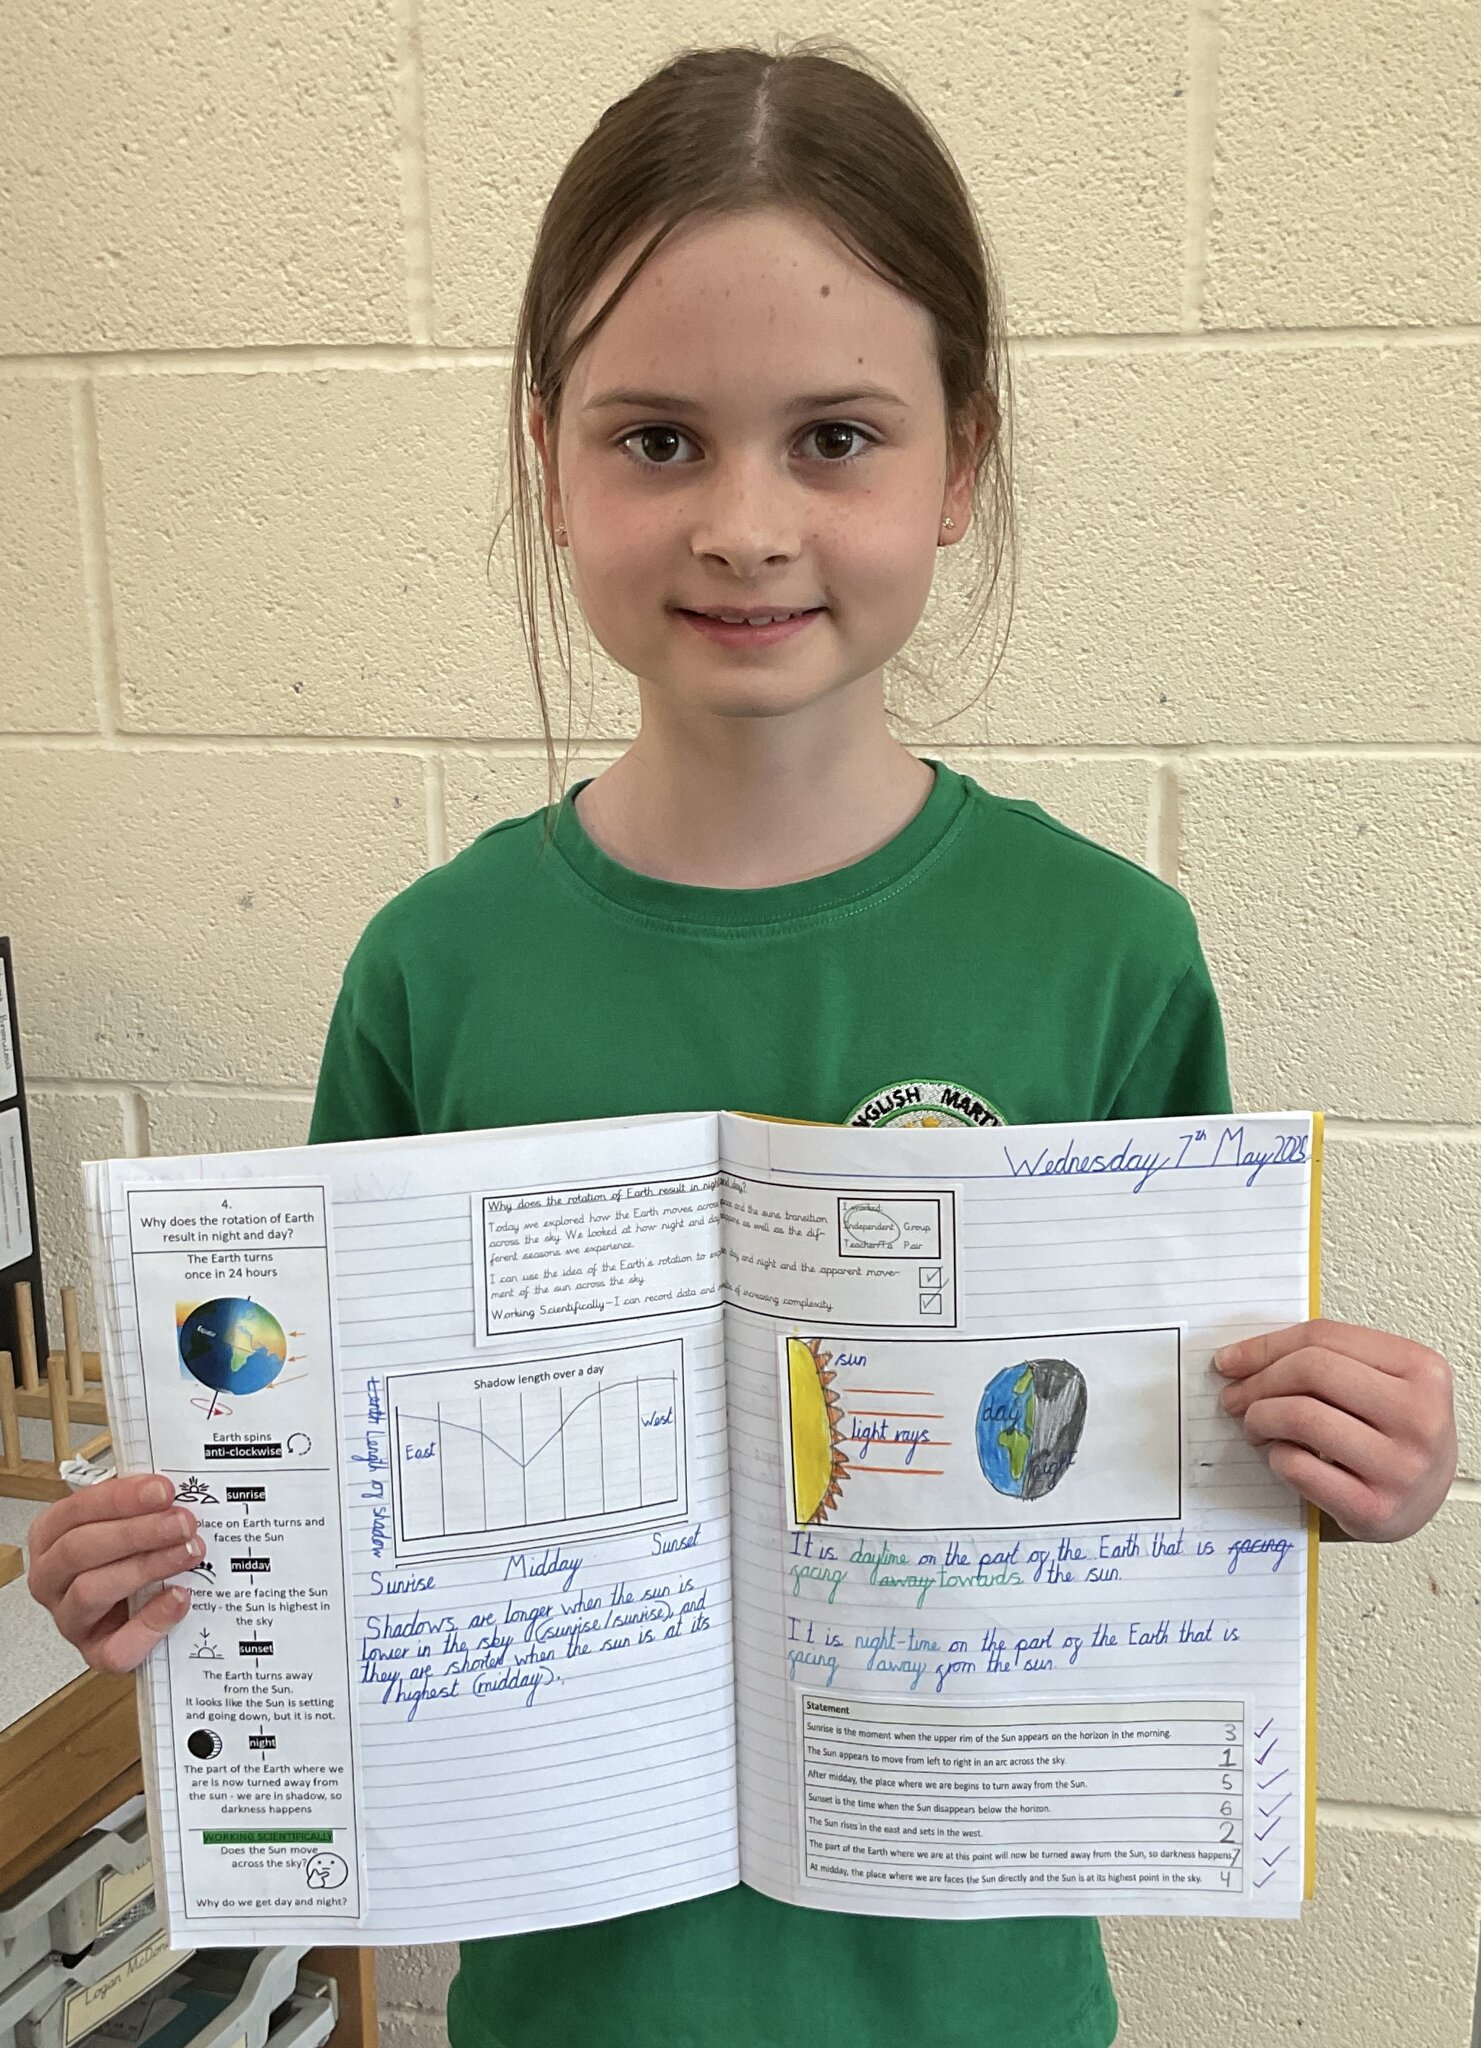 ENGLISH MARTY
Wednesday 7th May 2025
4.
Why does the rotation of Earth
result in night and day?
The Earth turns
once in 24 hours
Equator
Earth spins
anti-clockwise
sunrise
place on Earth turns and
faces the Sun
midday
here we are facing the Sun
ectly - the Sun is highest in
the sky
sunset
The Earth turns away
from the Sun.
It looks like the Sun is setting
and going down, but it is not.
night
The part of the Earth where we
are is now turned away from
the sun - we are in shadow, so
darkness happens
WORKING SCIENTIFICALLY
Does the Sun move
across the sky?
Why do we get day and night?
Why does the rotation of Earth result in night and day?
Today we explored how the Earth moves across space and the suns transition
across the sky. We looked at how night and day happens as well as the dif-
ferent seasons we experience.
I can use the idea of the Earth's rotation to explain day and night and the apparent move-
ment of the sun across the sky.
Working Scientifically – I can record data and results of increasing complexity
I worked:
Independent Group
Teacher/TA Pair
Shadow length over a day
length of shadow
East
West
Sunrise Midday Sunset
Shadows are longer when the sun is
lower in the sky (sunrise/sunrise), and
they are shorted when the sun is at its
highest (midday).
sun
light rays
day
night
It is daytime on the part of the Earth that is facing
facing away towards the sun.
It is night-time on the part of the Earth that is
facing away from the sun.
Statement
Sunrise is the moment when the upper rim of the Sun appears on the horizon in the morning. 3
The Sun appears to move from left to right in an arc across the sky. 1
After midday, the place where we are begins to turn away from the Sun. 5
Sunset is the time when the Sun disappears below the horizon. 6
The Sun rises in the east and sets in the west. 2
The part of the Earth where we are at this point will now be turned away from the Sun, so darkness happens 7
At midday, the place where we are faces the Sun directly and the Sun is at its highest point in the sky. 4
Logan McDon